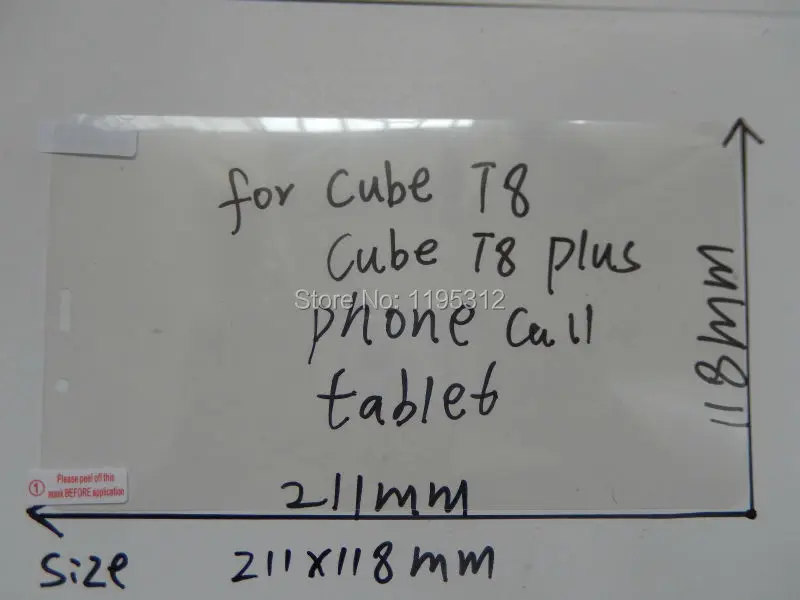 for Cube T8
Cube T8 plus
Store No: 1195312
phone Call
tablet
118mm
211mm
1 Please peel off this
mask BEFORE application
Size 211x118mm